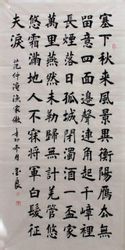 塞下秋來風景異衡陽雁去無
留意四面邊聲連角起千嶂裡
長煙落日孤城閉濁酒一盃家
萬里燕然未勒歸無計羌管悠
悠霜滿地人不寐將軍白髮征
夫淚
范仲淹漁家傲